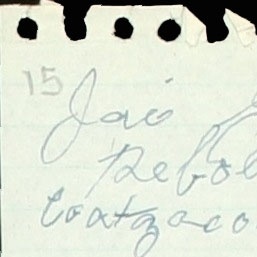 15 Jaió
Rebol
Coatzaco